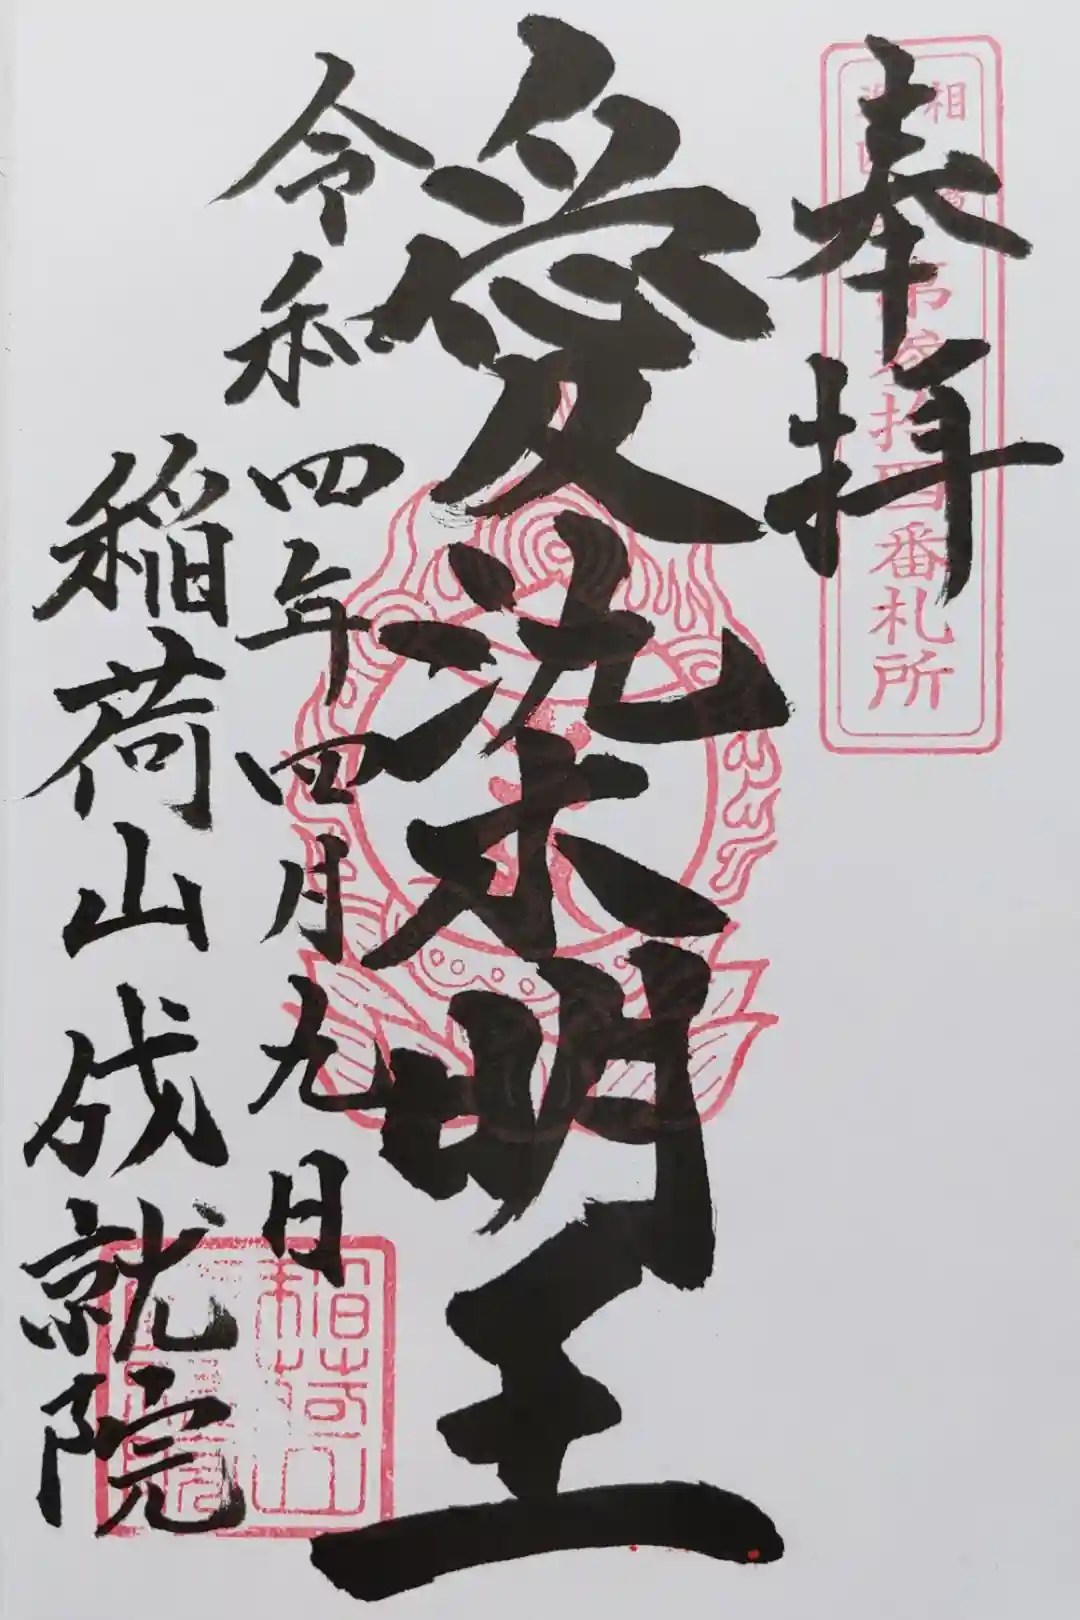 奉拝
愛染明王
令和四年四月九日
稲荷山成就院
第参拾四番札所
稲荷山